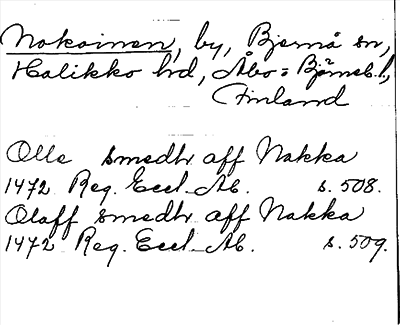 Nokainen, by, Bjernå sn,
Halikko hd, Åbo=Björneb. l.,
Finland
Olle smedhr aff Nakka
1472 Reg. Eccl. Ab. s. 508.
Olaff smedhr aff Nakka
1472 Reg. Eccl. Ab. s. 509.